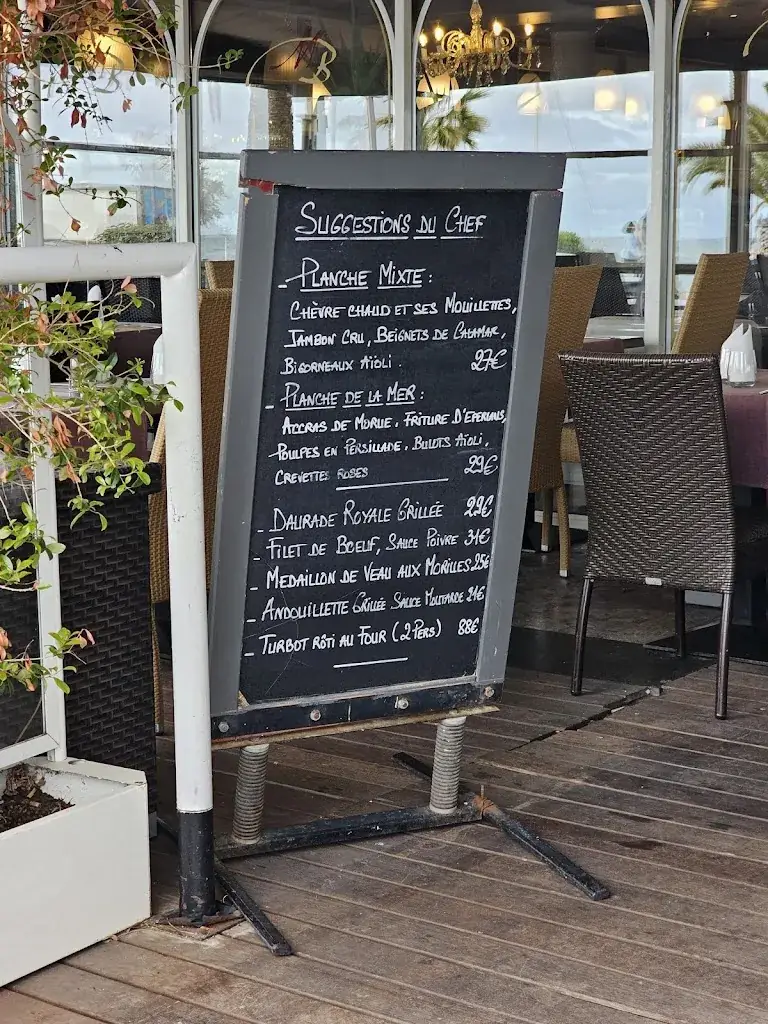 B
SUGGESTIONS DU CHEF
- PLANCHE MIXTE :
CHÈVRE CHAUD ET SES MOUILLETTES,
JAMBON CRU, BEIGNETS DE CALAMAR,
BIGORNEAUX AÏOLI. 27€
- PLANCHE DE LA MER :
ACCRAS DE MORUE, FRITURE D'EPERLANS,
POULPES EN PERSILLADE, BULOTS AÏOLI,
CREVETTES ROSES 29€
- DAURADE ROYALE GRILLÉE 29€
- FILET DE BOEUF, SAUCE POIVRE 31€
- MEDAILLON DE VEAU AUX MORILLES 25€
- ANDOUILLETTE GRILLÉE SAUCE MOUTARDE 21€
- TURBOT RÔTI AU FOUR (2 PERS) 88€